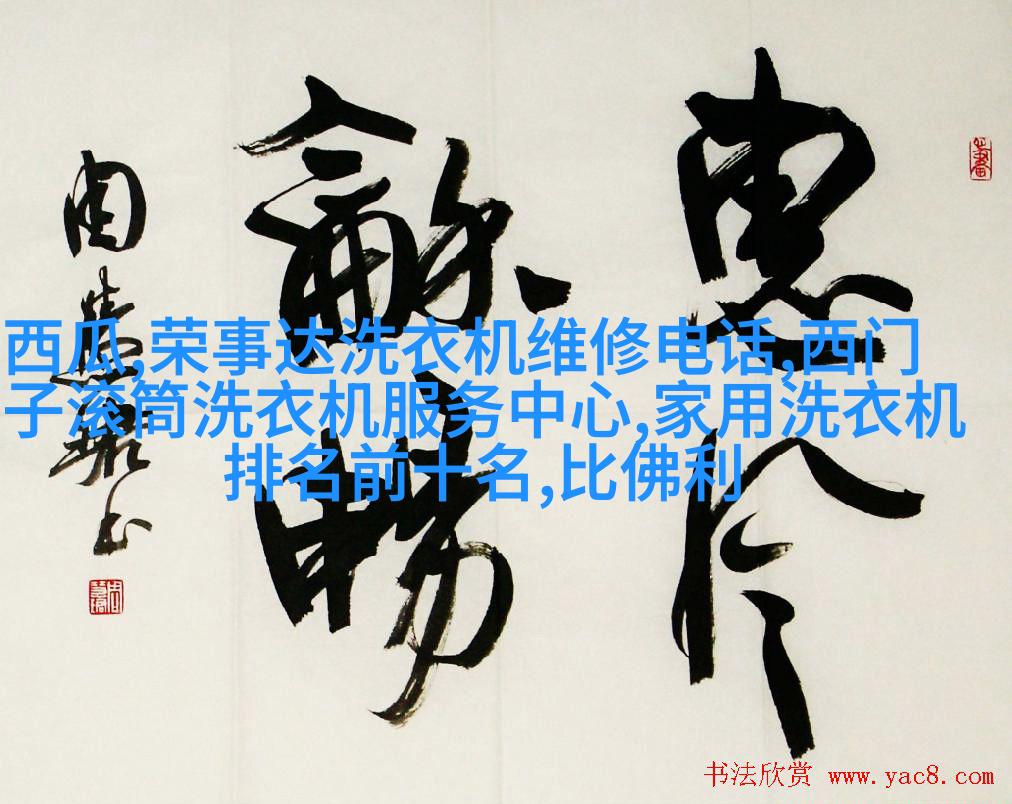 惠風
龢暢
周慧珺书
西瓜,荣事达洗衣机维修电话,西门
子滚筒洗衣机服务中心,家用洗衣机
排名前十名,比佛利
书法欣赏 www.yac8.com